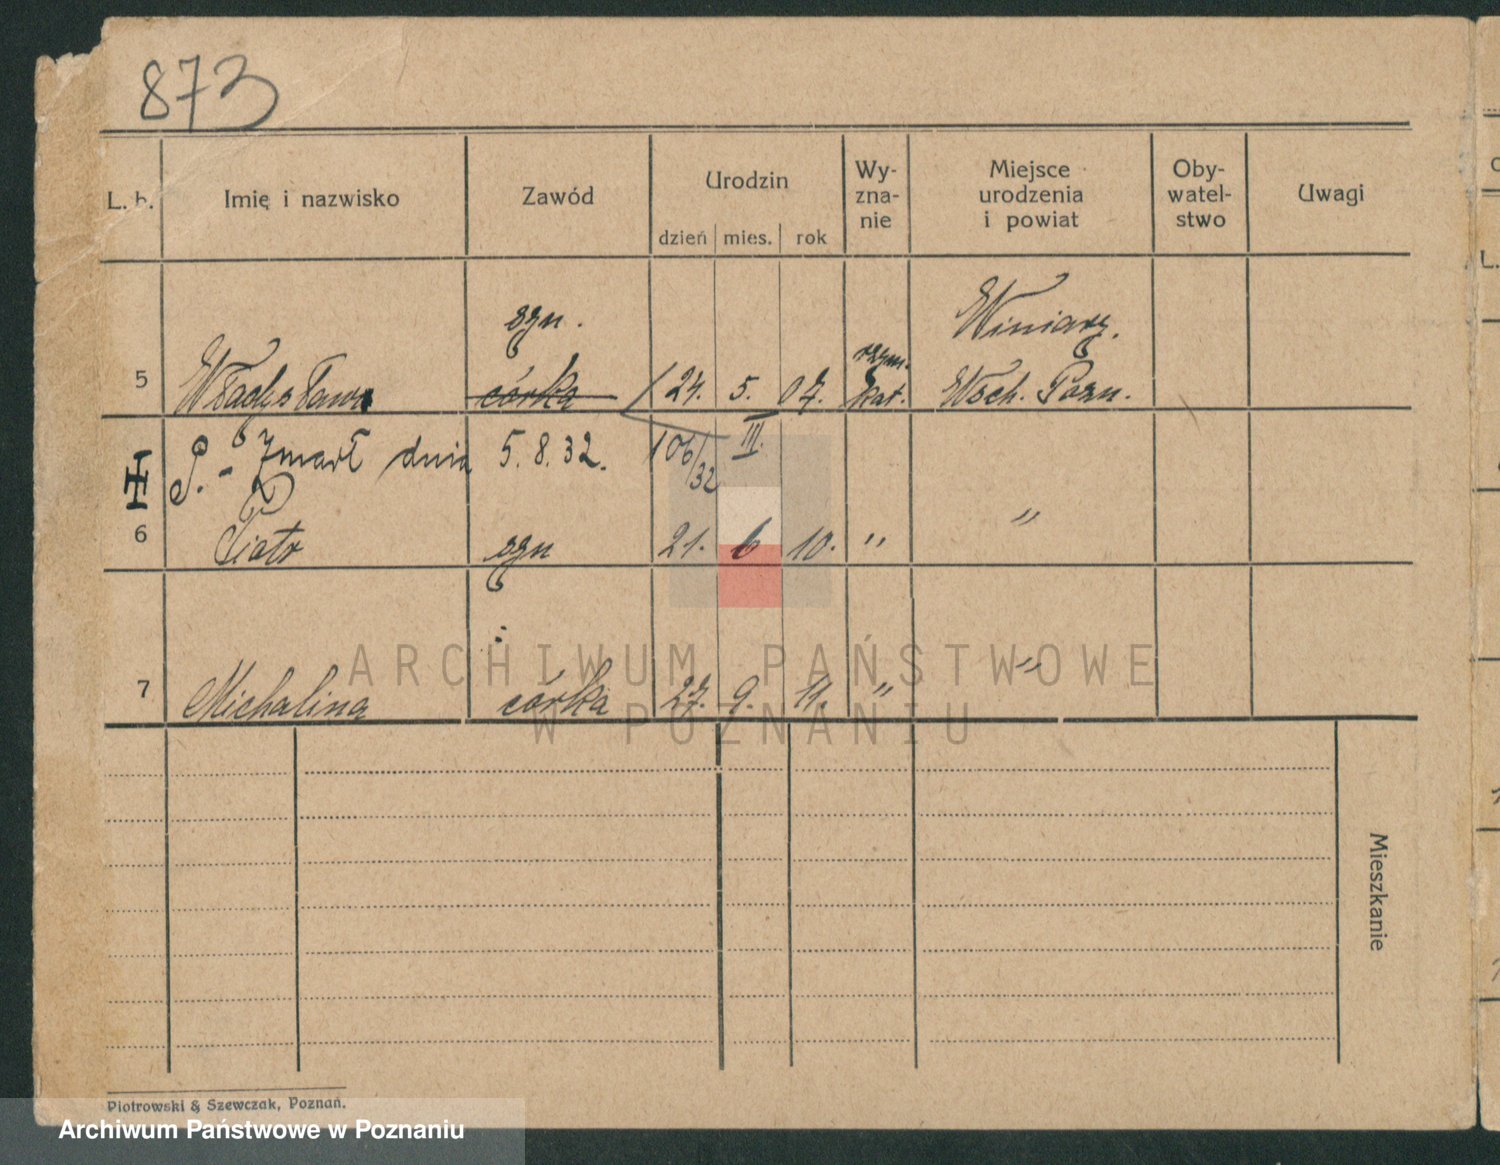 873
L. b.
Imię i nazwisko
Zawód
Urodzin
dzień mies. rok
Wy-
zna-
nie
Miejsce
urodzenia
i powiat
Oby-
watel-
stwo
Uwagi
syn.
Winiary.
rzym.
5 Władysława córka 24. 5. 07. kat. Wsch. Pozn.
Zmarł dnia 5.8.32. 106/32 III.
6 Piotr syn 21. 6 10. " "
7 Michalina córka 27. 9. 11. " "
Mieszkanie
Piotrowski & Szewczak, Poznań.
ARCHIWUM PAŃSTWOWE
W POZNANIU
Archiwum Państwowe w Poznaniu